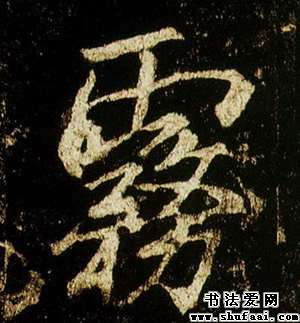 霧
书法爱网
www.shufaai.com